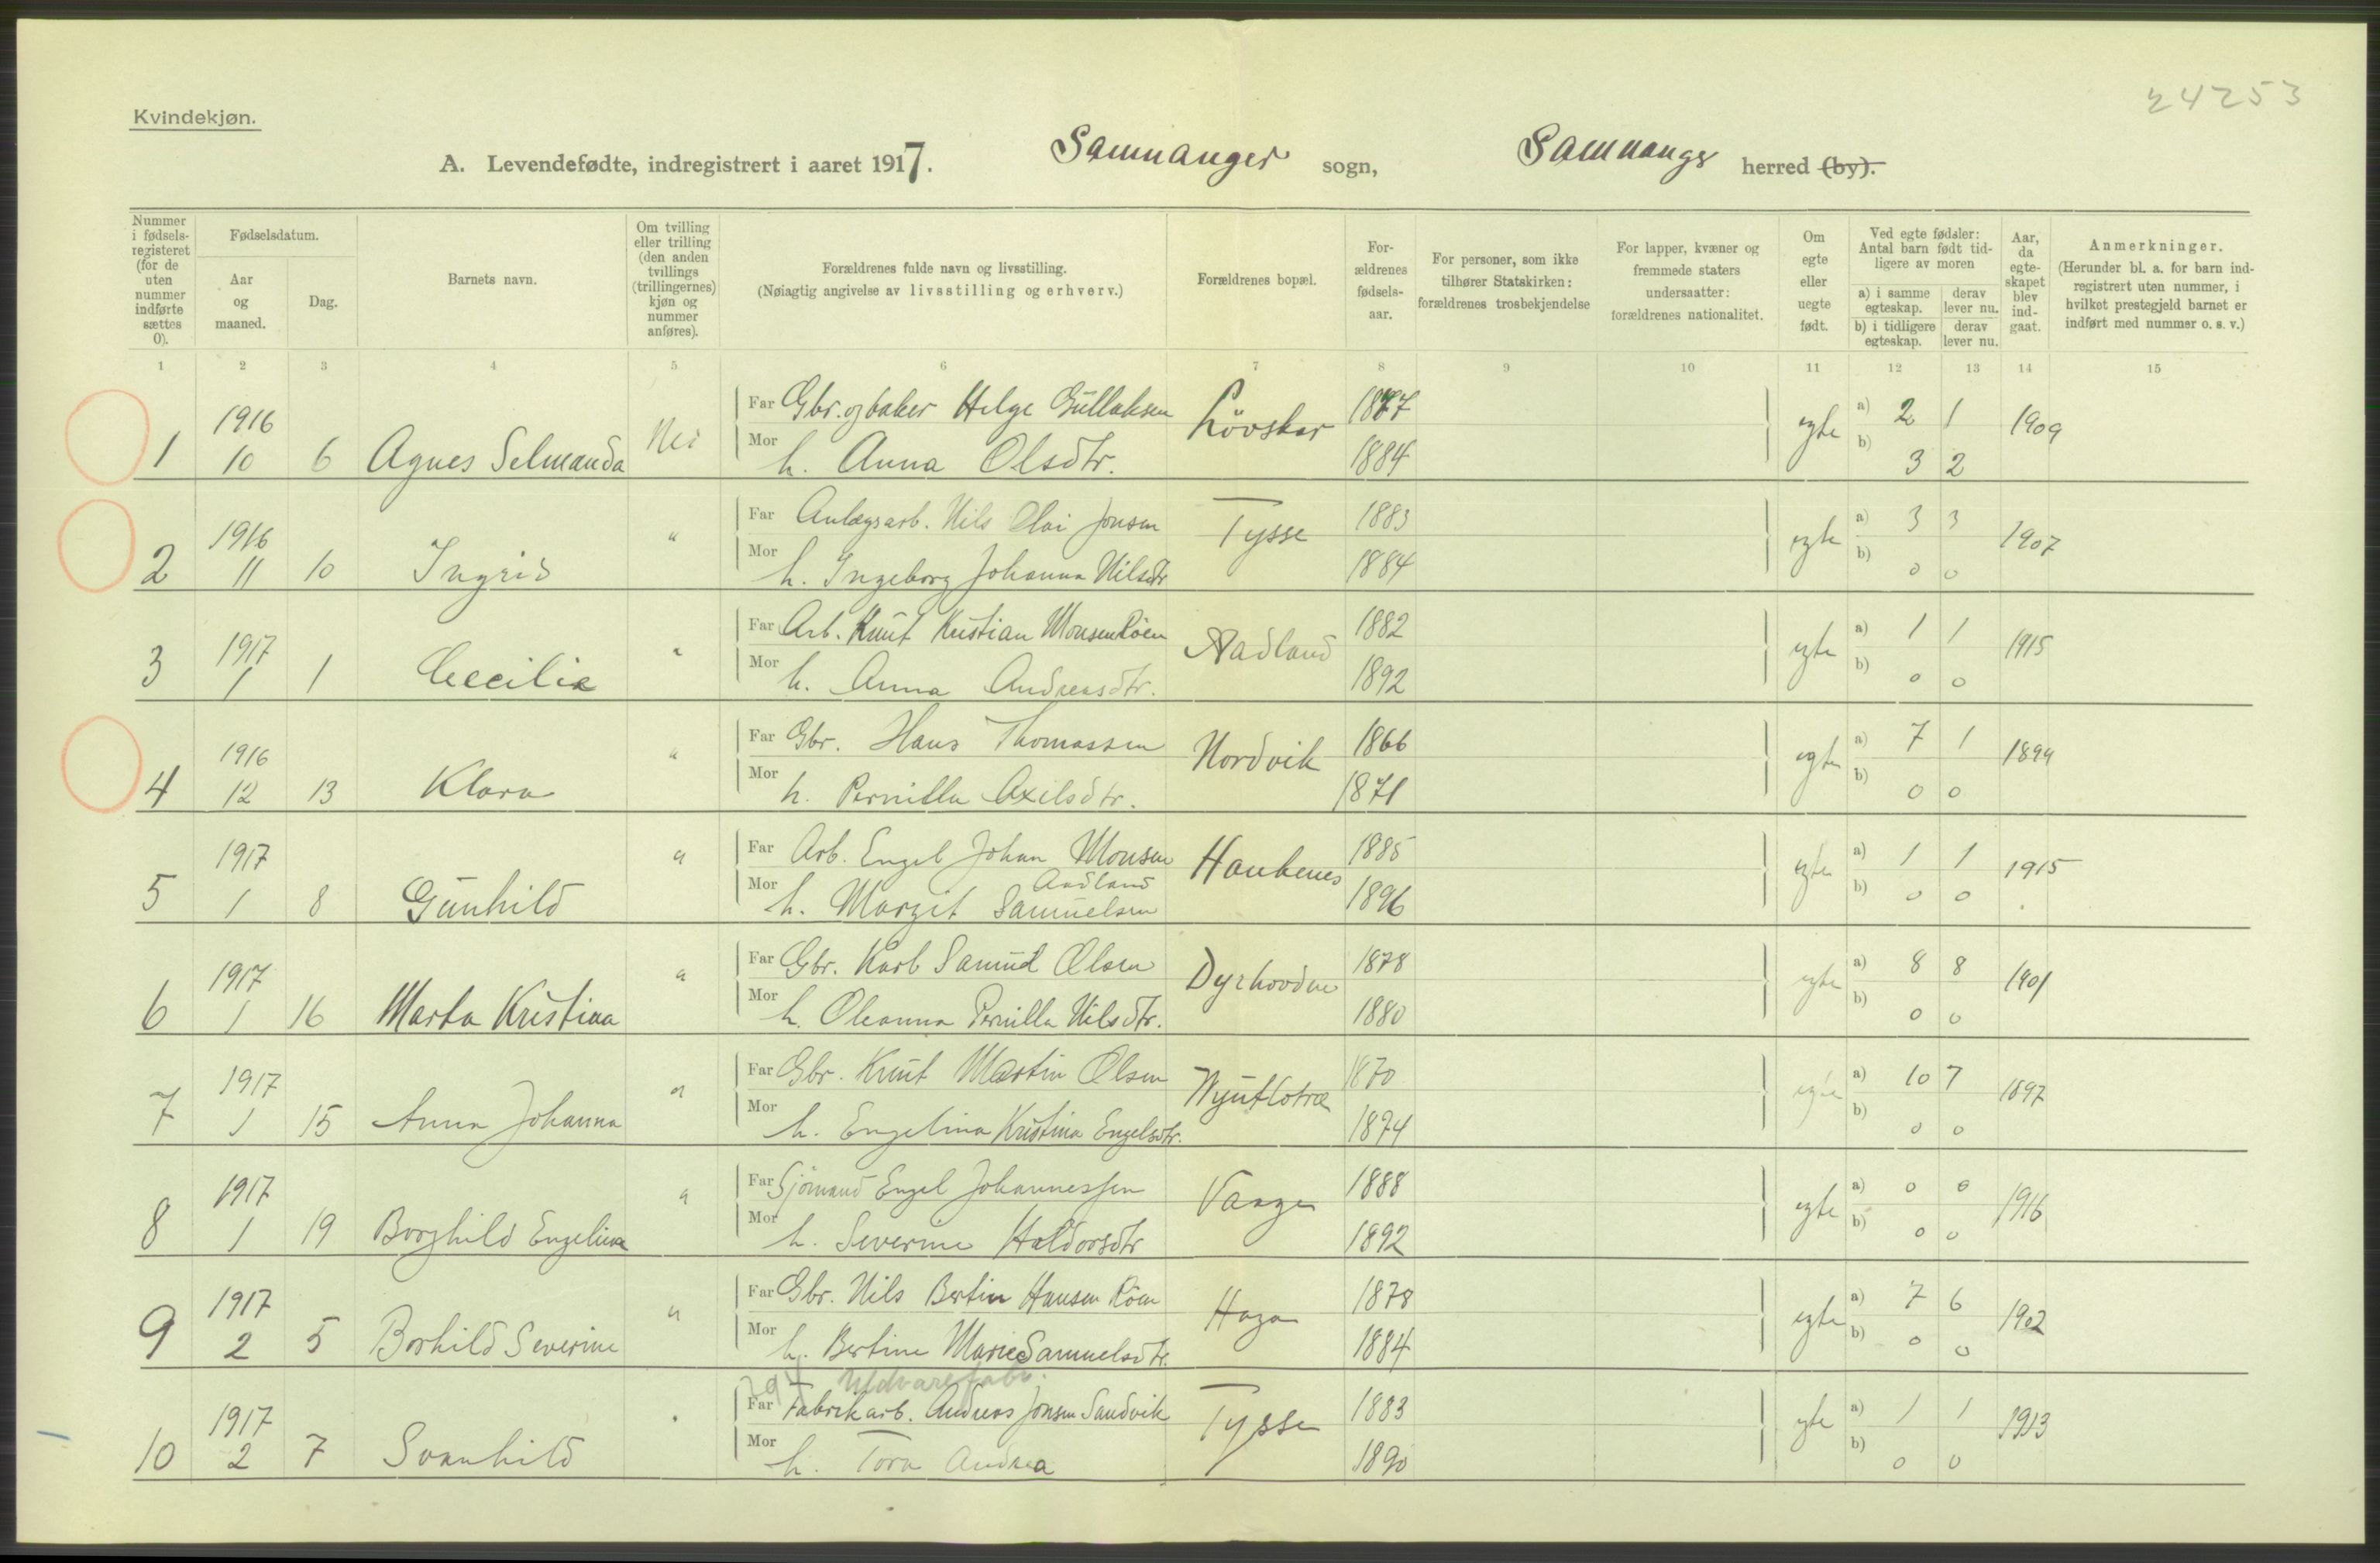 24253
Kvindekjøn.
A. Levendefødte, indregistrert i aaret 1917. Samnanger sogn, Samnanger herred (by).
Nummer i fødsels-registeret (for de uten nummer indførte sættes 0).
Fødselsdatum.
Aar og maaned.
Dag.
Barnets navn.
Om tvilling eller trilling (den anden tvillings (trillingernes) kjøn og nummer anføres).
Forældrenes fulde navn og livsstilling.
(Nøiagtig angivelse av livsstilling og erhverv.)
Forældrenes bopæl.
For-ældrenes fødsels-aar.
For personer, som ikke tilhører Statskirken: forældrenes trosbekjendelse
For lapper, kvæner og fremmede staters undersaatter: forældrenes nationalitet.
Om egte eller uegte født.
Ved egte fødsler: Antal barn født tid-ligere av moren
a) i samme egteskap. derav lever nu.
b) i tidligere egteskap. derav lever nu.
Aar, da egte-skapet blev ind-gaat.
Anmerkninger.
(Herunder bl. a. for barn ind-registrert uten nummer, i hvilket prestegjeld barnet er indført med nummer o. s. v.)
1 2 3 4 5 6 7 8 9 10 11 12 13 14 15
1 1916 10 6 Agnes Selmanda Nei Far Gbr. og baker Helge Gullaksen Lövskar 1877 egte a) 2 1 1909
Mor h. Anna Olsdtr. 1884 b) 3 2
2 1916 11 10 Ingrid " Far Anlægsarb. Nils Olai Jonsen Tysse 1883 egte a) 3 3 1907
Mor h. Ingeborg Johanna Nilsdtr 1884 b) 0 0
3 1917 1 1 Cecilie " Far Arb. Knut Kristian Monsen Röen Aadland 1882 egte a) 1 1 1915
Mor h. Anna Andreasdtr. 1892 b) 0 0
4 1916 12 13 Klara " Far Gbr. Hans Thomassen Nordvik 1866 egte a) 7 1 1899
Mor h. Pernilla Axilsdtr. 1871 b) 0 0
5 1917 1 8 Gunhild " Far Arb. Engel Johan Monsen Haukenes 1885 egte a) 1 1 1915
Aadland
Mor h. Margit Samuelsen 1896 b) 0 0
6 1917 1 16 Marta Kristina " Far Gbr. Karl Samuel Olsen Dyrhovden 1878 egte a) 8 8 1901
Mor h. Oleanna Pernilla Nilsdtr. 1880 b) 0 0
7 1917 1 15 Anna Johanna " Far Gbr. Knut Martin Olsen 1870 egte a) 10 7 1897
Mor h. Engelina Kristina Engelsdtr. 1874 b) 0 0
8 1917 1 19 Borghild Engelina " Far Sjömand Engel Johannessen Vaage 1888 egte a) 0 0 1916
Mor h. Severine Haldorsdtr 1892 b) 0 0
9 1917 2 5 Borhild Severine " Far Gbr. Nils Bertin Hansen Röen Haga 1878 egte a) 7 6 1902
Mor h. Bertine Marie Samuelsdtr. 1884 b) 0 0
Uldvarefabr.
10 1917 2 7 Svanhild Far Fabrikarb. Andreas Jonsen Sandvik Tysse 1883 egte a) 1 1 1913
Mor h. Tora Andrea 1890 b) 0 0